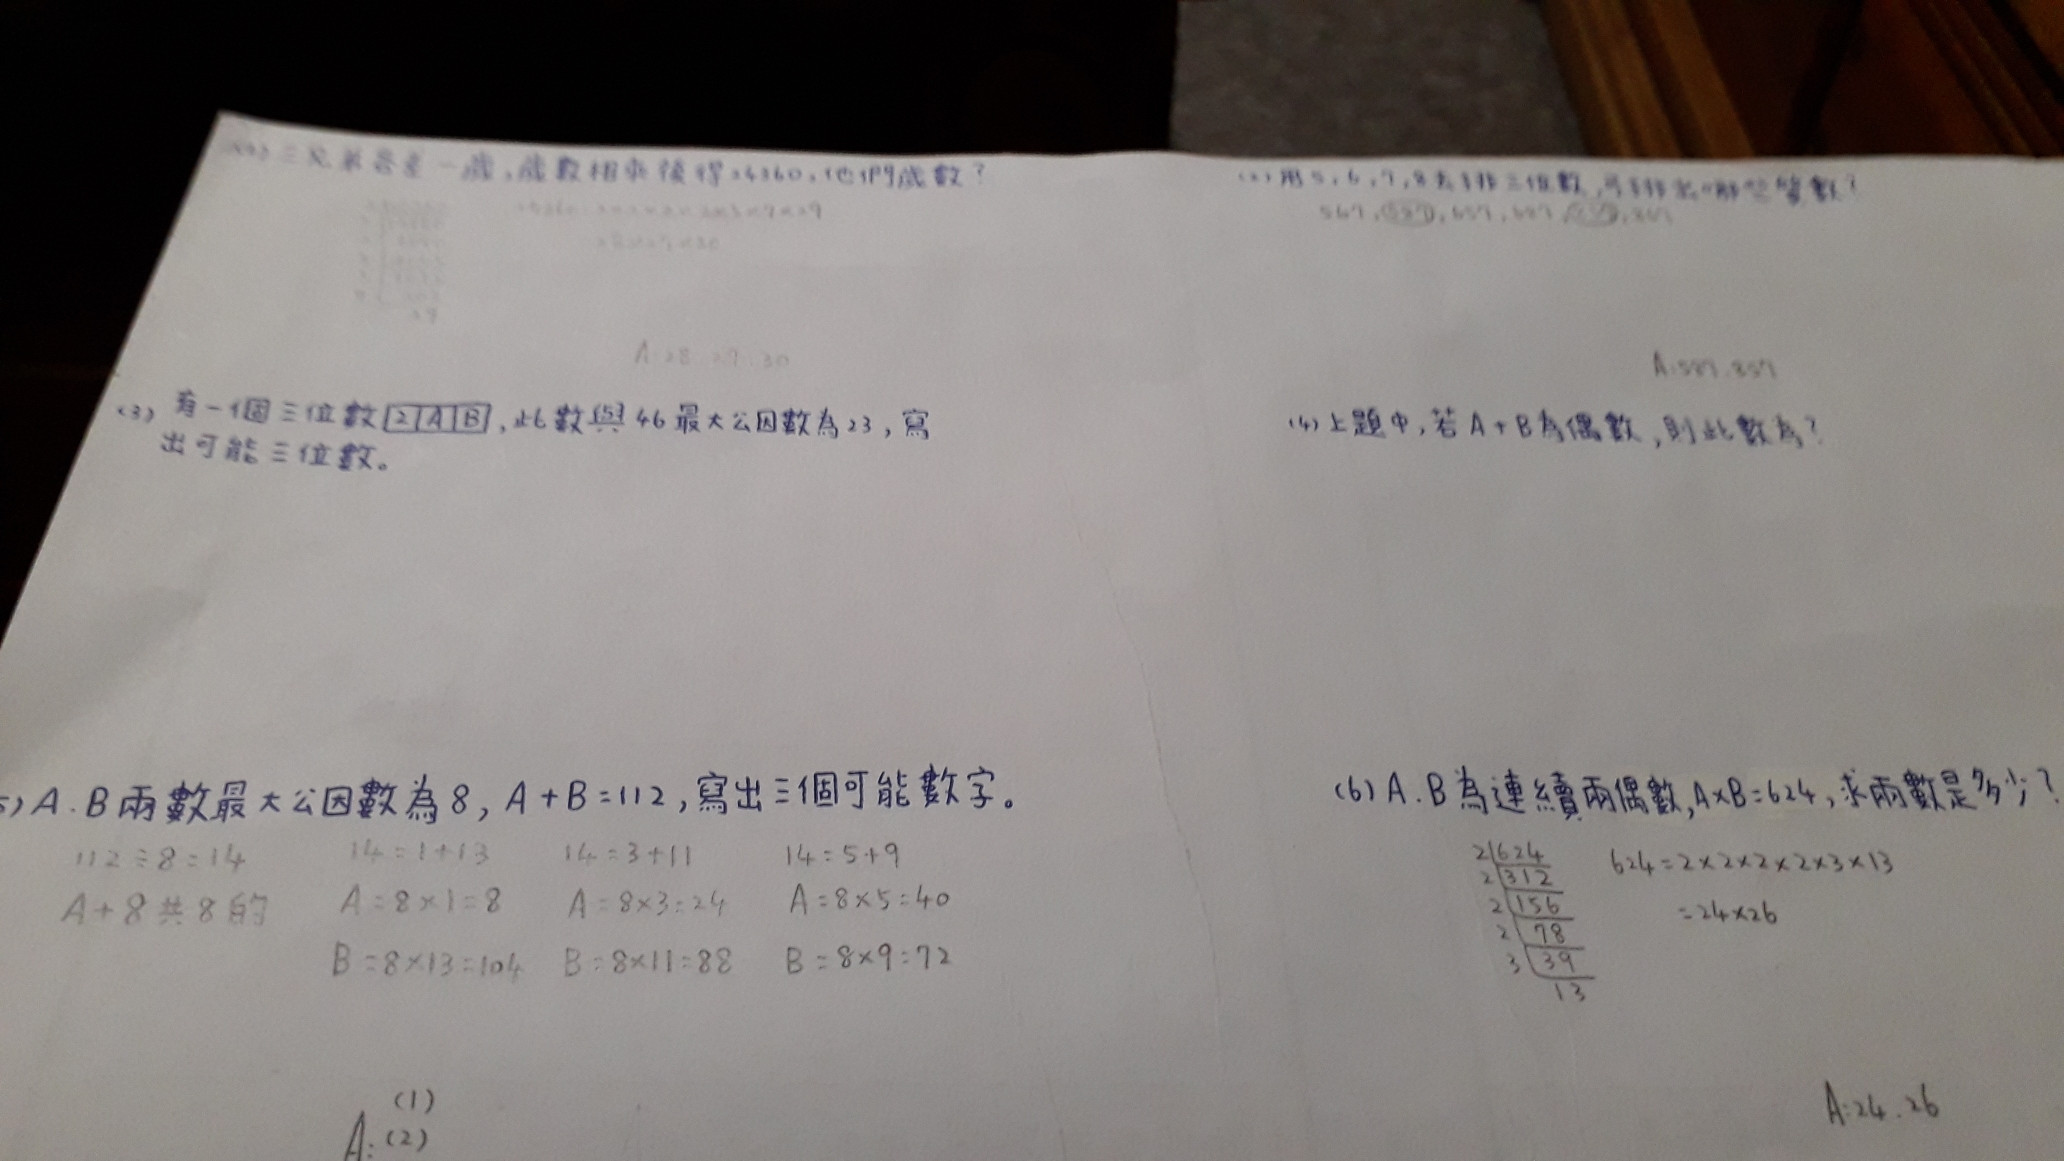 三兄弟各差一歲,歲數相乘後得24360,他們歲數?
28×29×30
29
A:28.29.30
(2)用5,6,7,8去排三位數,可排出哪些質數?
567,587,657,687,857,867
A:587.857
(3)有一個三位數2AB,此數與46最大公因數為23,寫
出可能三位數。
(4)上題中,若A+B為偶數,則此數為?
5)A.B兩數最大公因數為8,A+B=112,寫出三個可能數字。
112÷8=14 14=1+13 14=3+11 14=5+9
A+8共8的 A=8×1=8 A=8×3=24 A=8×5=40
B=8×13=104 B=8×11=88 B=8×9=72
A:(1)
(2)
(6)A.B為連續兩偶數,A×B=624,求兩數是多少?
2 624 624=2×2×2×2×3×13
2 312
2 156 =24×26
2 78
3 39
13
A:24.26